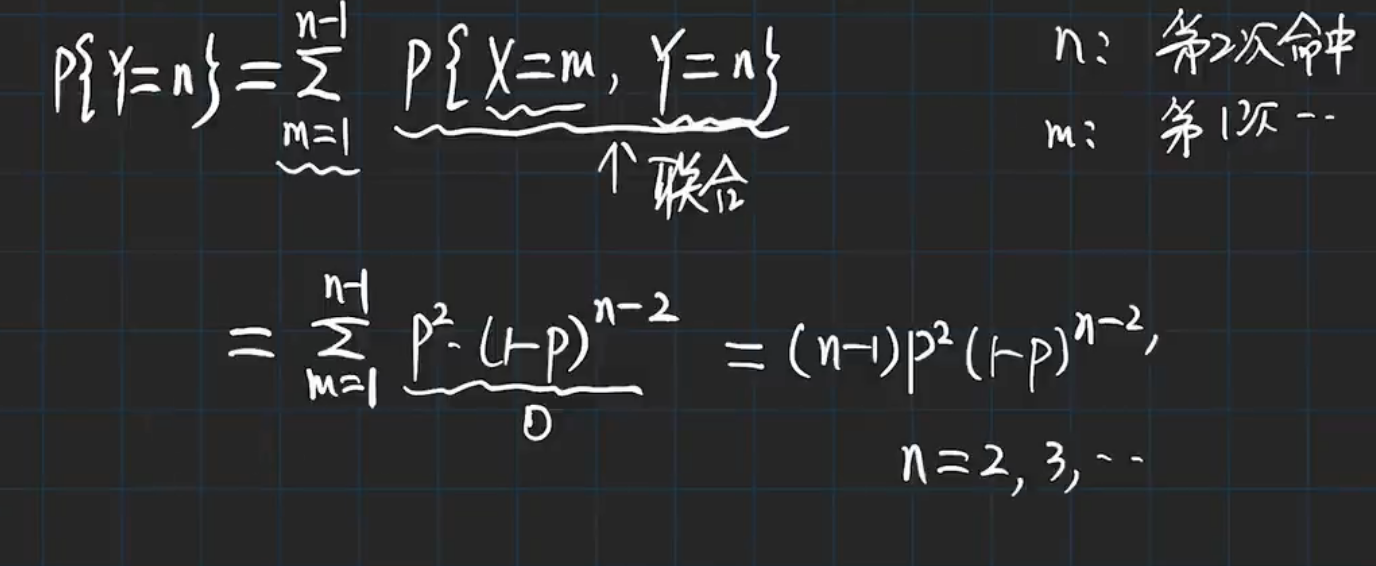 P{Y=n}=∑_{m=1}^{n-1} P{X=m, Y=n}
n: 第2次命中
m: 第1次…
↑联合
=∑_{m=1}^{n-1} p²·(1-p)^{n-2} =(n-1)p²(1-p)^{n-2},
0
n=2, 3,…